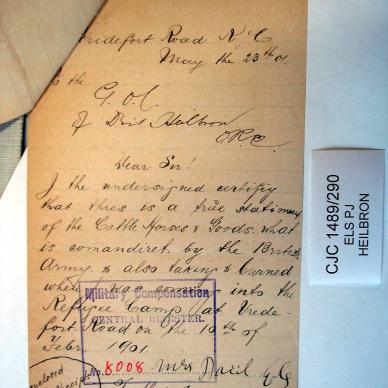 Vredefort Road R.C
May the 23th 01.
To the
G.O.C
of Dist Heilbron
ORC.
Dear Sir!
I the undersigned certifiy
that thies is a true statiment
of the Cattle Horses & Goods. what
is comandiret by the British
Army & also taking & burned
when I was coming into the
Refugee Camp at Vrede-
fort Road on the 10th of
Febr. 1901.
Military Compensation
CENTRAL REGISTER.
No. 8008
Mrs
enclosed
CJC 1489/290
ELS PJ
HEILBRON